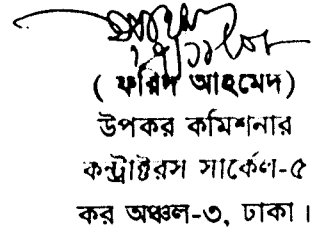 ( ফরিদ আহমেদ)
উপকর কমিশনার
কন্ট্রাক্টরস সার্কেল-৫
কর অঞ্চল-৩, ঢাকা।